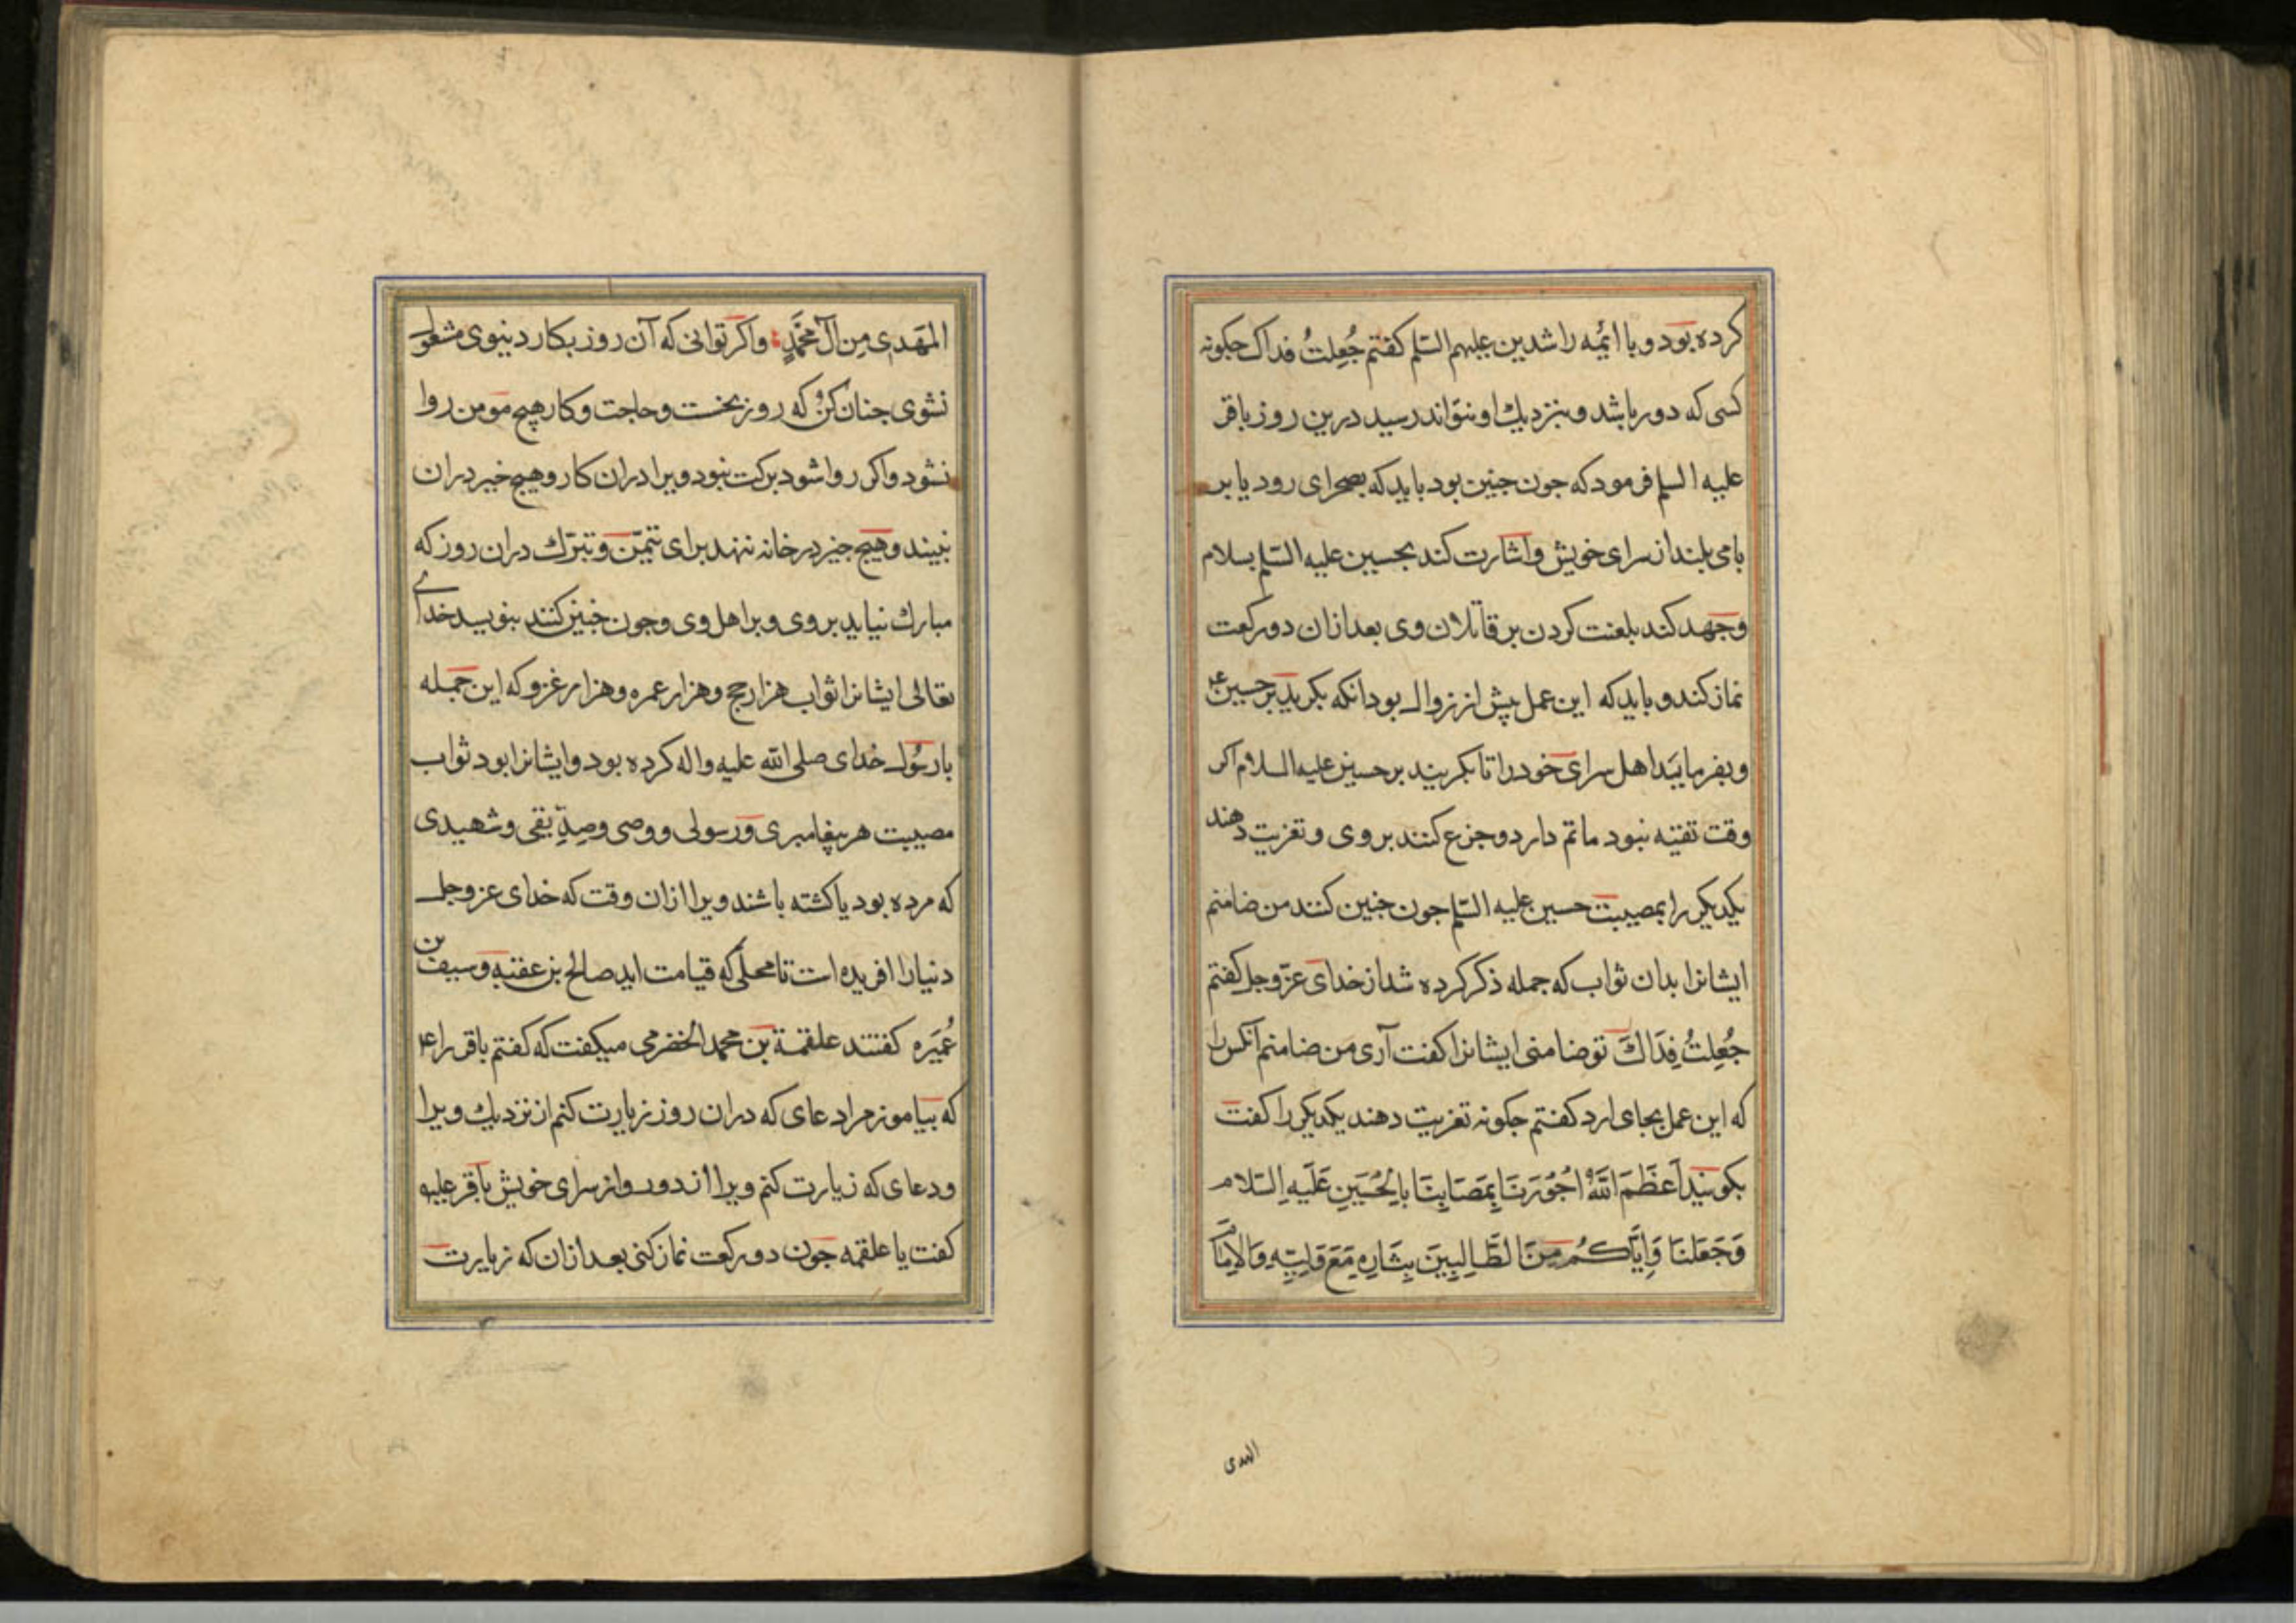 کرده بود و با ائمه راشدین علیهم السلم کفتم جُعِلتُ فداک جکونه
کسی که دور باشد و بنزدیك او نتواند رسید درین روز باقر
علیه السلم فرمود که جون جنین بود باید که بصحرای رود یا بر
بامی بلند از سرای خویش و اشارت کند بحسین علیه السلم بسلام
وجهد کند بلعنت کردن بر قاتلان وی بعد ازان دو رکعت
نماز کند و باید که این عمل پیش از زوال بود انکه بکرید بر حسین ع
وبفرماید اهل سرای خود را تا بکریند بر حسین علیه السلام اکر
وقت تقیه نبود ماتم دارد و جزع کنند بر وی و تعزیت دهند
یکدیکر را بمصیبت حسین علیه السلم جون جنین کنند من ضامنم
ایشانرا بدان ثواب که جمله ذکر کرده شد از خدای عزّوجل کفتم
جُعِلتُ فِدَاكَ تو ضامنی ایشانرا کفت آری من ضامنم آنکس را
که این عمل بجای ارد کفتم جکونه تعزیت دهند یکدیکر را کفت
بکویند اَعظَمَ اللَّهُ اُجُوُرَنَا بِمَصَابِنَا بِالحُسَینِ عَلَیهِ السّلام
وَجَعَلنَا وَاِیَّاكُم مِنَ الطَّالِبینَ بِثَارِهِ مَعَ وَلیِّهِ وَالاِمَامِ
المهدی
المَهَدیِ مِن آلِ مُحَمَّدٍ واکر توانی که آن روز بکار دنیوی مشغول
نشوی جنان کن که روز نخست و حاجت و کار هیج مومن روا
نشود واکر روا شود برکت نبود ویرا دران کار وهیج خیر دران
نبیند وهیج جیز در خانه ننهد برای تیمّن و تبرّك دران روز که
مبارك نیاید بر وی و بر اهل وی و جون جنین کنند بنویسد خدای
تعالی ایشانرا ثواب هزار حج وهزار عمره وهزار غزو که این جمله
با رسُول خدای صلی الله علیه واله کرده بود و ایشانرا بود ثواب
مصیبت هر پیغامبری و رسولی و وصی و صِدّیقی و شهیدی
که مرده بود یا کشته باشند ویرا ازان وقت که خدای عز وجل
دنیا را افریده است تا محلی که قیامت اید صالح بن عقبه و سیف بن
عُمَیَره کفتند علقمة بن محمد الحضرمی میکفت که کفتم باقر را ع
که بیاموز مرا دعای که دران روز زیارت کنم از نزدیك ویرا
ودعای که زیارت کنم ویرا از دور واز سرای خویش باقر علیه
کفت یا علقمه جون دو رکعت نماز کنی بعد ازان که زیارت